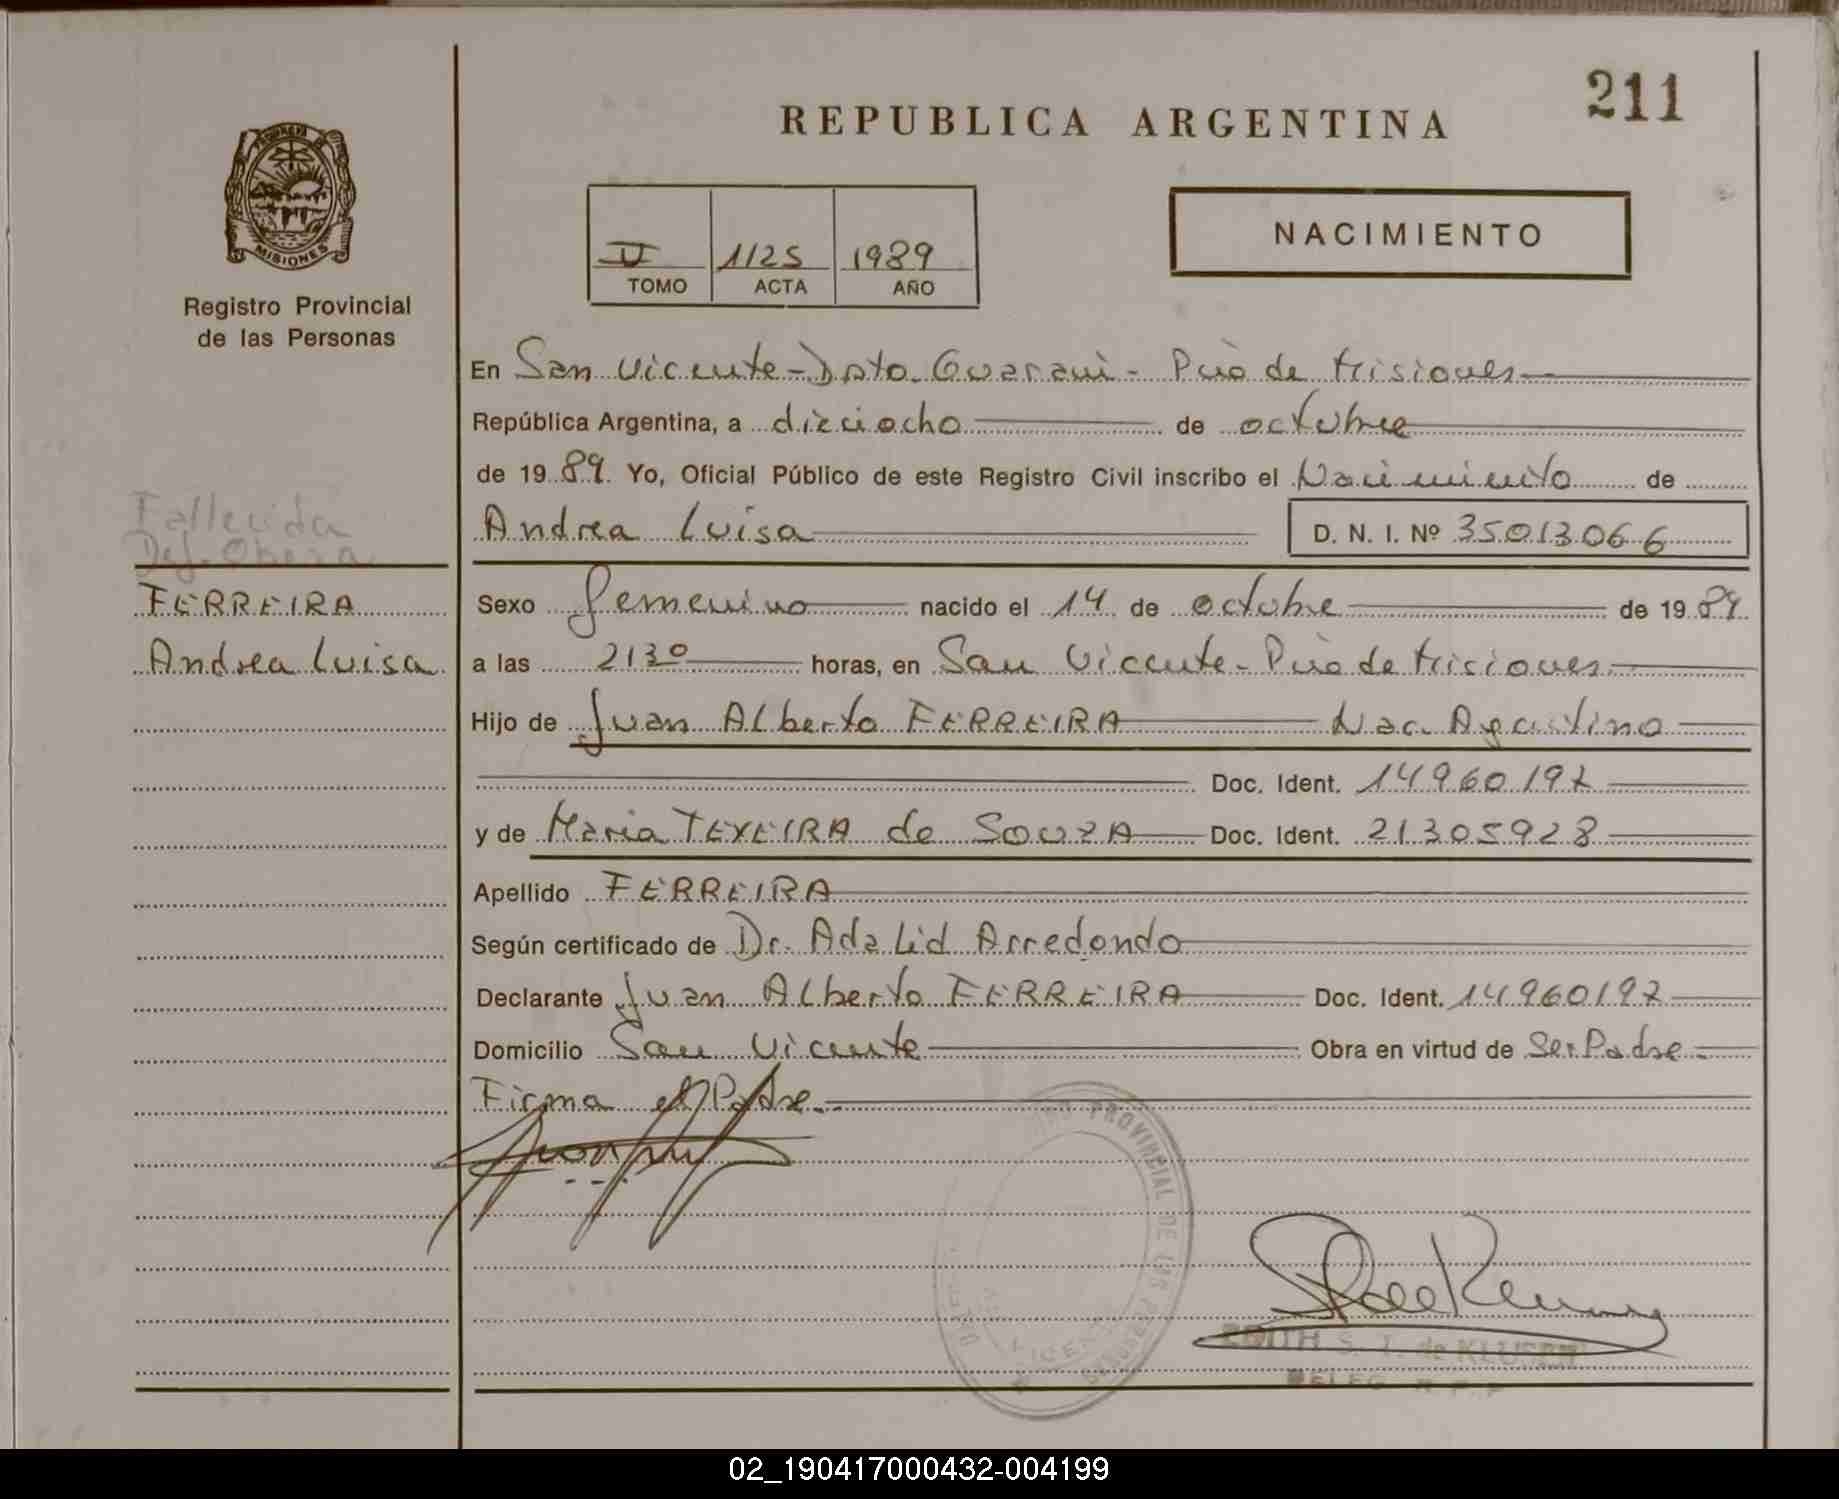 211
REPUBLICA ARGENTINA
MISIONES
Registro Provincial
de las Personas
NACIMIENTO
II 1125 1989
TOMO ACTA AÑO
En San Vicente - Dpto. Guaraní - Pcia de Misiones
República Argentina, a dieciocho de octubre
de 1989. Yo, Oficial Público de este Registro Civil inscribo el Nacimiento de
Andrea Luisa D. N. I. Nº 35013066
Fallecida
Def. Obera
FERREIRA
Andrea Luisa
Sexo femenino nacido el 14 de octubre de 1989
a las 2130 horas, en San Vicente - Pcia de Misiones
Hijo de Juan Alberto FERREIRA Nac. Argentino
Doc. Ident. 14960197
y de Maria TEXEIRA de SOUZA Doc. Ident. 21305928
Apellido FERREIRA
Según certificado de Dr. Adalid Arredondo
Declarante Juan Alberto FERREIRA Doc. Ident. 14960197
Domicilio San Vicente Obra en virtud de Ser Padre
Firma el Padre
PROVINCIAL DE LAS PERSONAS
EDITH S. T. de KLUSEN
DELEG. R. P. P.
02_190417000432-004199